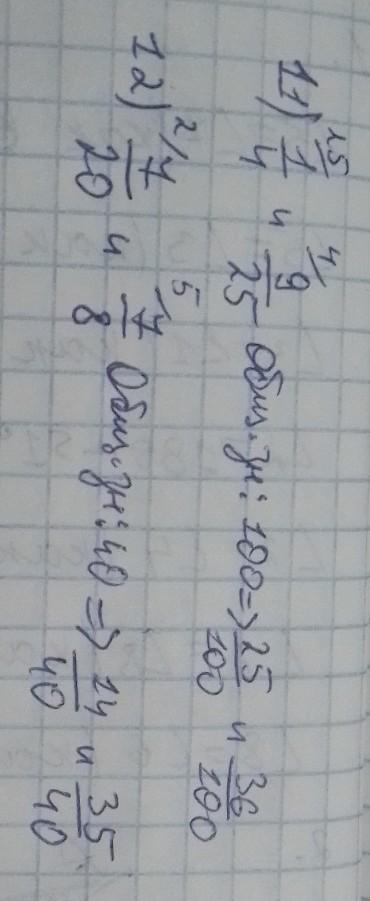 11) 25/ 1/4 и 4/ 9/25 Общ. зн: 100 => 25/100 и 36/100
12) 2/ 7/20 и 5/ 7/8 Общ. зн: 40 => 14/40 и 35/40